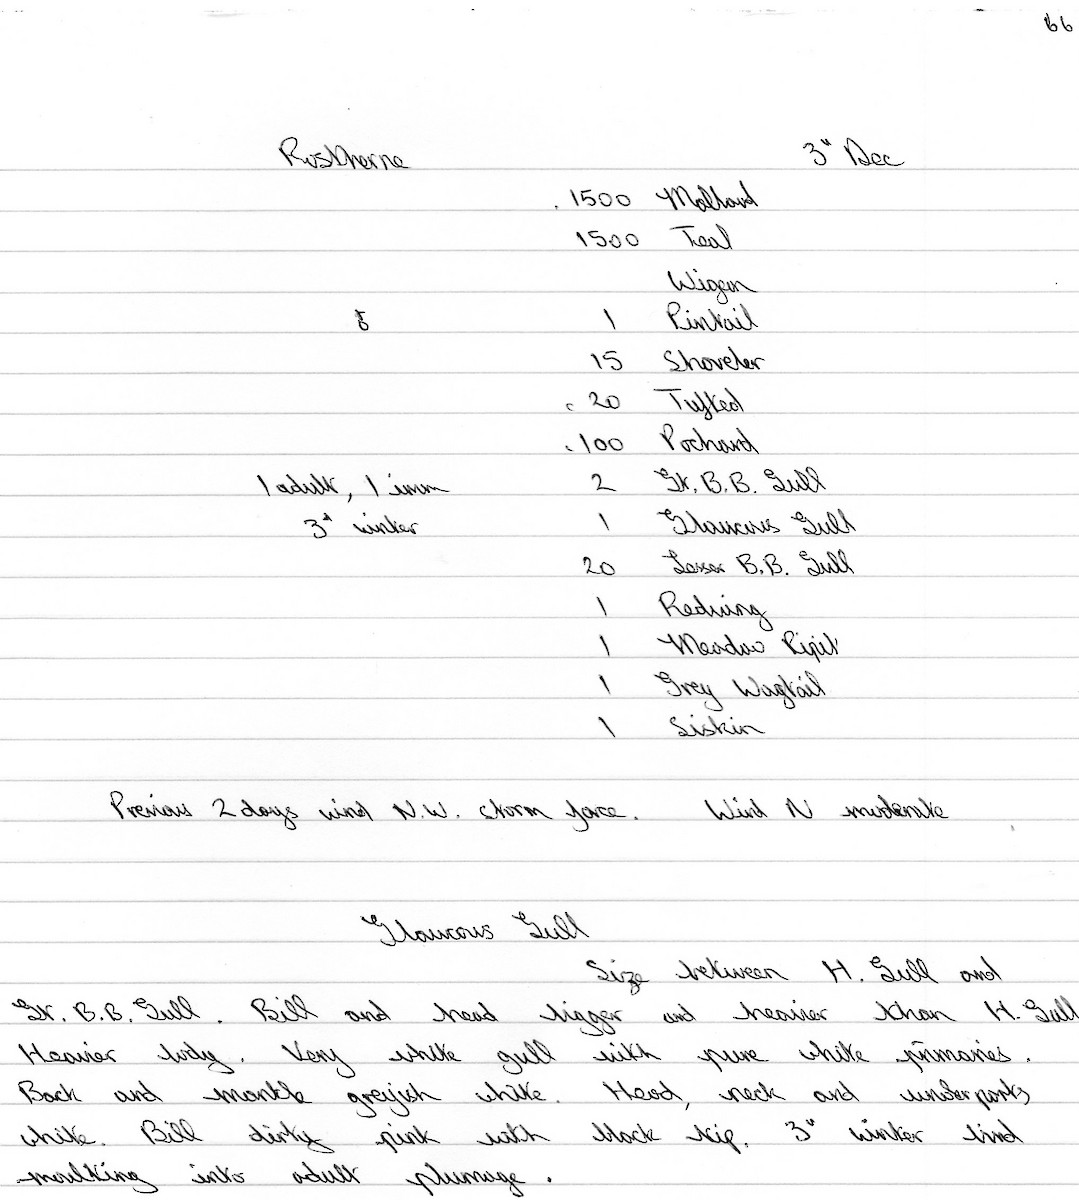 66
Rostherne 3rd Dec
. 1500 Mallard
1500 Teal
Wigeon
♂ 1 Pintail
15 Shoveler
c 20 Tufted
c 100 Pochard
1 adult, 1 imm 2 Gr. B.B. Gull
3rd winter 1 Glaucous Gull
20 Lesser B.B. Gull
1 Redwing
1 Meadow Pipit
1 Grey Wagtail
1 Siskin
Previous 2 days wind N.W. storm force. Wind N moderate
Glaucous Gull
Size between H. Gull and
Gr. B.B. Gull. Bill and head bigger and heavier than H. Gull
Heavier body. Very white gull with pure white primaries.
Back and mantle greyish white. Head, neck and underparts
white. Bill dirty pink with black tip. 3rd winter bird
moulting into adult plumage.